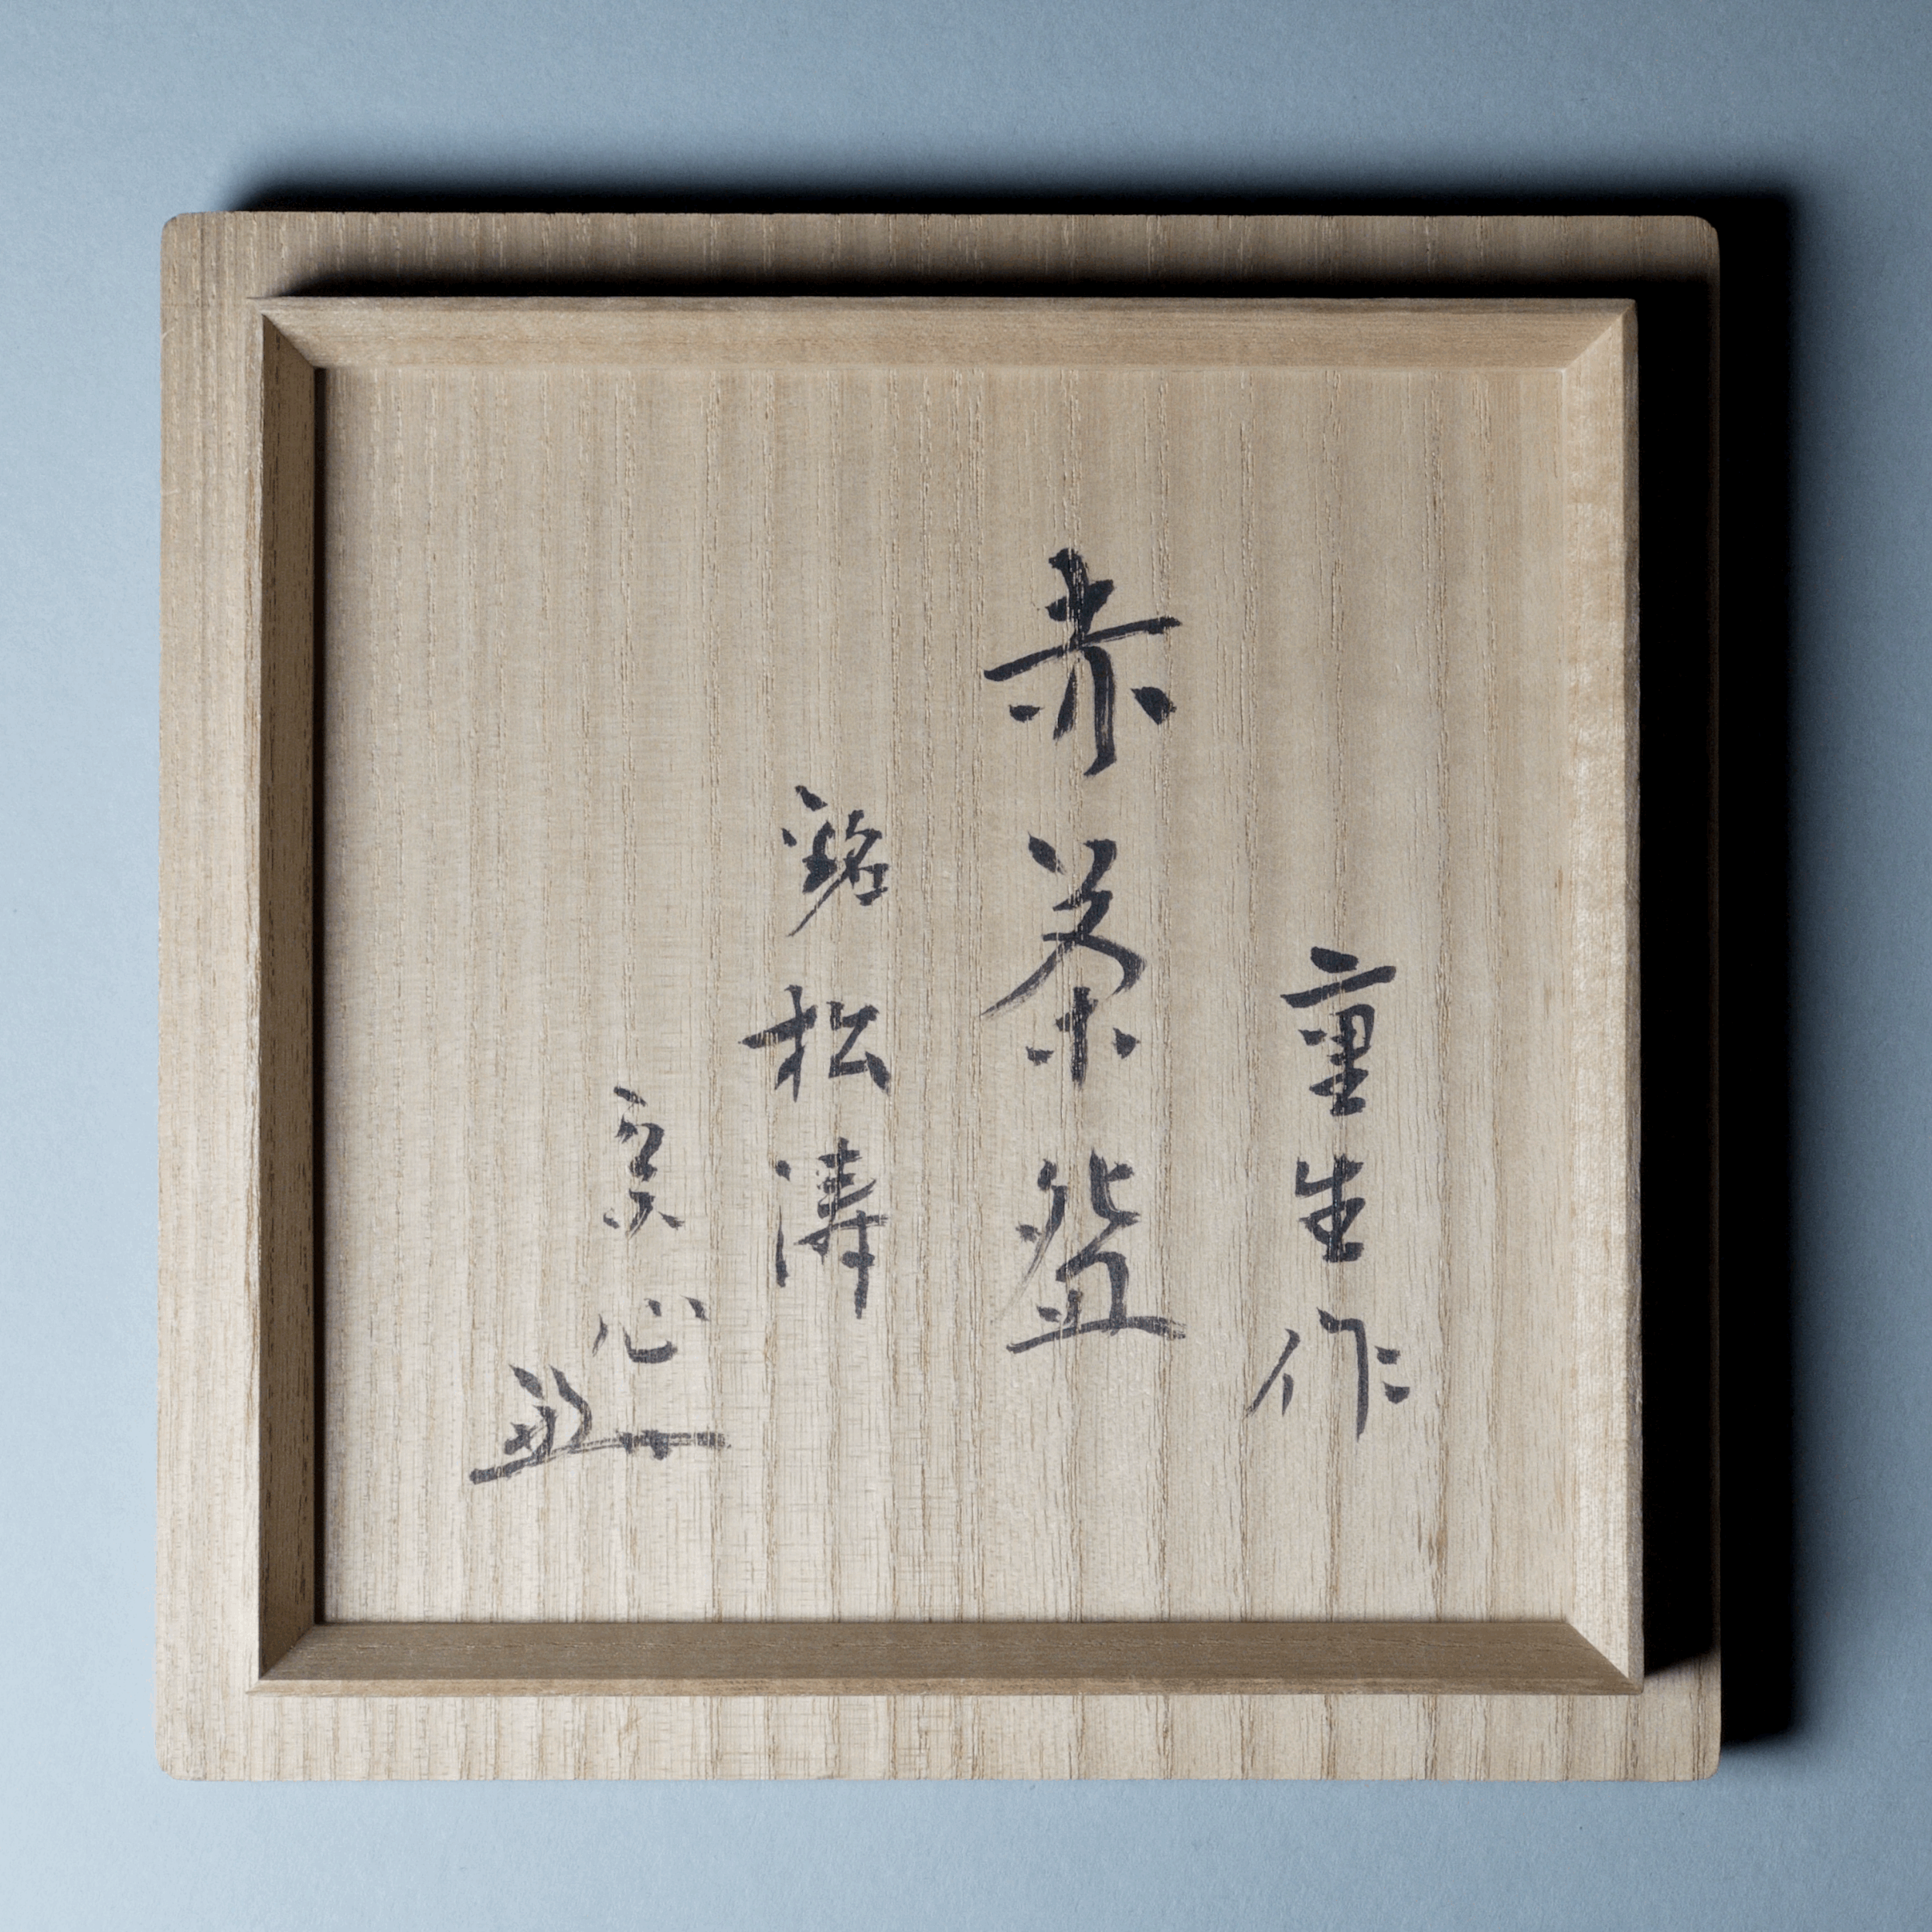 重生作
赤茶盌
銘 松濤
宗心